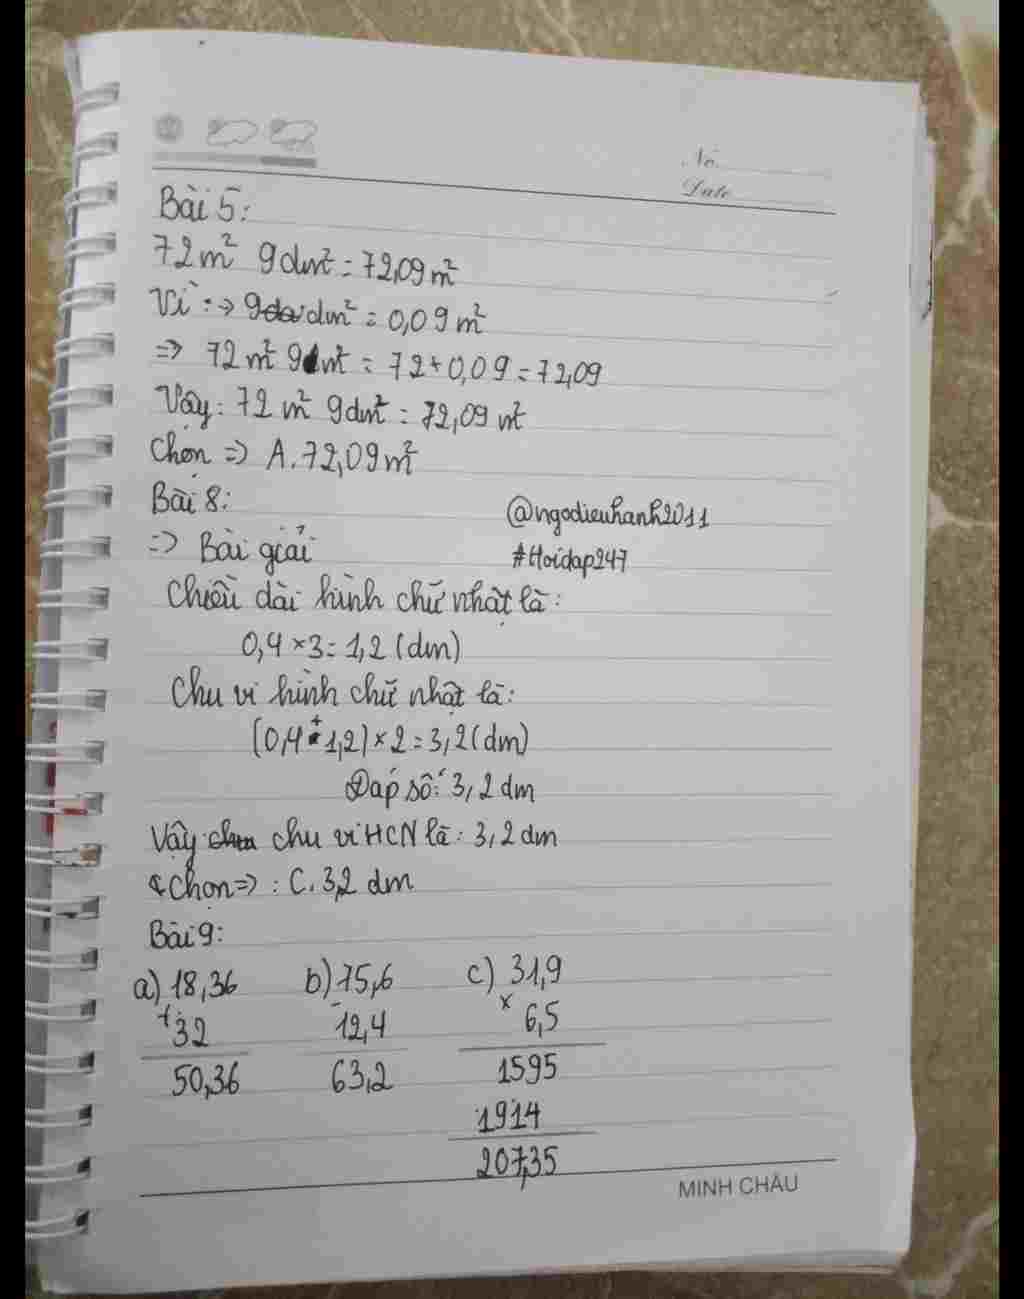 No
Date
Bài 5:
72m² 9dm² = 72,09m²
Vì: → 9 dm² = 0,09m²
=> 72m² 9dm² = 72+0,09 = 72,09
Vậy: 72 m² 9dm² = 72,09 m²
Chọn => A. 72,09m²
Bài 8:
@ngodieuhanh2011
=> Bài giải
#Hoidap247
Chiều dài hình chữ nhật là:
0,4 × 3 = 1,2 (dm)
Chu vi hình chữ nhật là:
(0,4 + 1,2) × 2 = 3,2 (dm)
Đáp số: 3,2 dm
Vậy chu vi HCN là: 3,2 dm
Chọn => : C. 3,2 dm
Bài 9:
a) 18,36 b) 75,6 c) 31,9
+ 32 - 12,4 × 6,5
50,36 63,2 1595
1914
207,35
MINH CHÂU